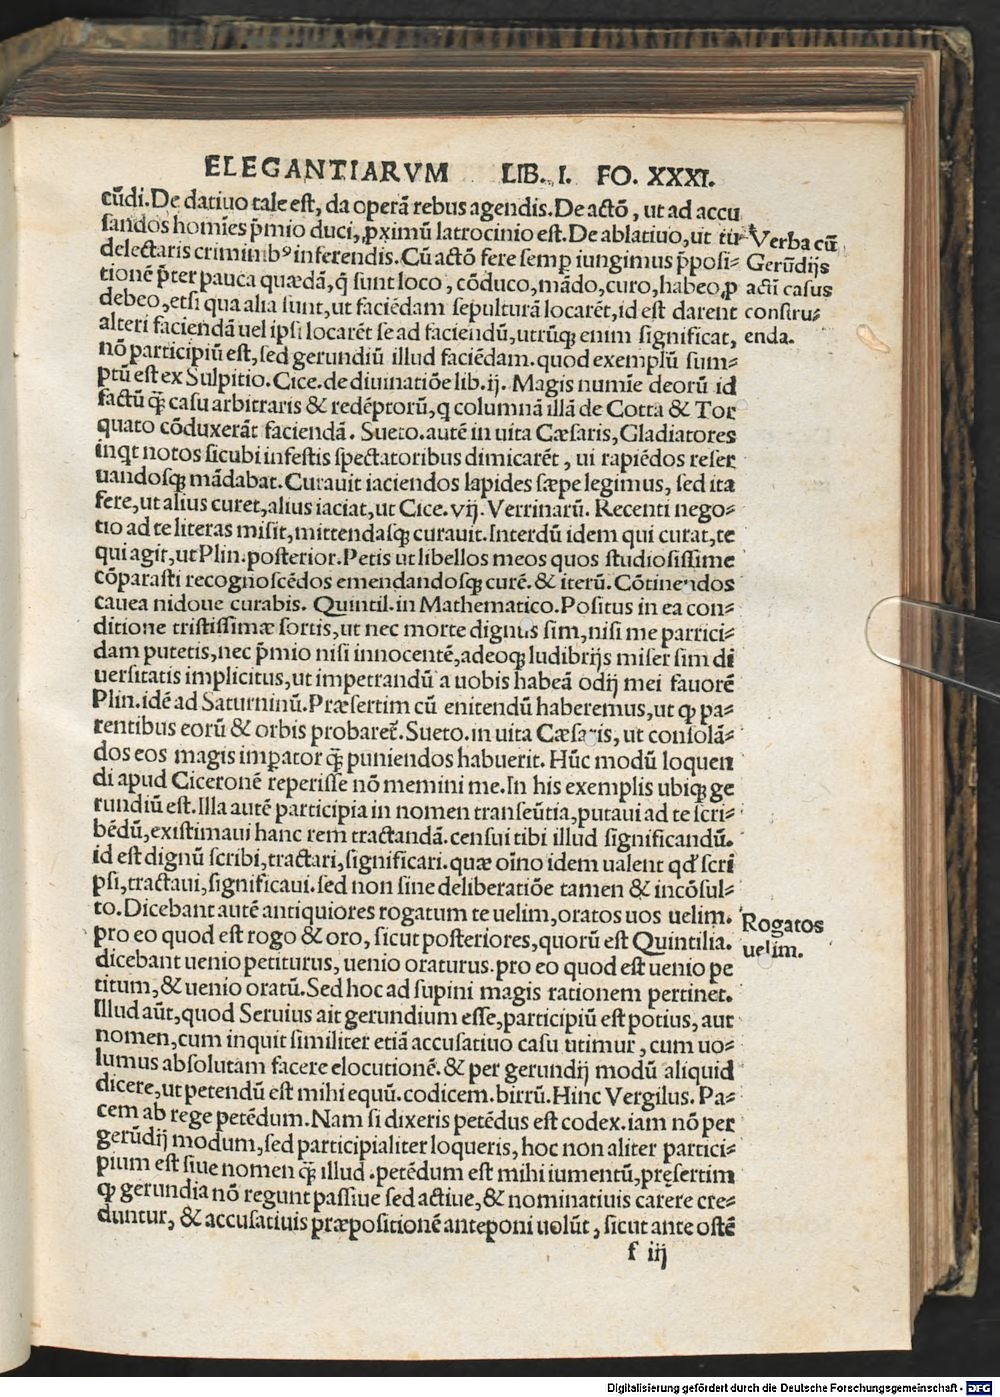 ELEGANTIARVM LIB. I. FO. XXXI.
cūdi. De datiuo tale est, da operā rebus agendis. De actō, ut ad accu
sandos homīes p̄mio duci, ꝓximū latrocinio est. De ablatiuo, ut tir
delectaris criminibꝰ inferendis. Cū actō fere semp iungimus p̄posi⸗
tionē p̄ter pauca quædā, q̄ sunt loco, cōduco, mādo, curo, habeo, ꝓ
debeo, etsi qua alia sunt, ut faciēdam sepulturā locarēt, id est darent
alteri faciendā uel ipsi locarēt se ad faciendū, utrūqꝫ enim significat,
nō participiū est, sed gerundiū illud faciēdam. quod exemplū sum⸗
ptū est ex Sulpitio. Cice. de diuinatiōe lib. ij. Magis numīe deorū id
factū qꝫ̄ casu arbitraris & redēptorū, q columnā illā de Cotta & Tor
quato cōduxerāt faciendā. Sueto. autē in uita Cæsaris, Gladiatores
inqt notos sicubi infestis spectatoribus dimicarēt, ui rapiēdos reser
uandosqꝫ mādabat. Curauit iaciendos lapides sæpe legimus, sed ita
fere, ut alius curet, alius iaciat, ut Cice. vij. Verrinarū. Recenti nego⸗
tio ad te literas misit, mittendasqꝫ curauit. Interdū idem qui curat, te
qui agit, ut Plin. posterior. Petis ut libellos meos quos studiosissime
cōparasti recognoscēdos emendandosqꝫ curē. & iterū. Cōtinendos
cauea nidoue curabis. Quintil. in Mathematico. Positus in ea con⸗
ditione tristissimæ sortis, ut nec morte dignus sim, nisi me parrici⸗
dam putetis, nec p̄mio nisi innocentē, adeoqꝫ ludibrijs miser sim di
uersitatis implicitus, ut impetrandū a uobis habeā odij mei fauorē
Plin. idē ad Saturninū. Præsertim cū enitendū haberemus, ut ꝙ pa⸗
rentibus eorū & orbis probaret᷑. Sueto. in uita Cæsaris, ut consolā⸗
dos eos magis imꝑator qꝫ̄ puniendos habuerit. Hūc modū loquen
di apud Ciceronē reperisse nō memini me. In his exemplis ubiqꝫ ge
rundiū est. Illa autē participia in nomen transeūtia, putaui ad te scri⸗
bēdū, existimaui hanc rem tractandā. censui tibi illud significandū.
id est dignū scribi, tractari, significari. quæ oīno idem ualent qd̕ scri
psi, tractaui, significaui. sed non sine deliberatiōe tamen & incōsul⸗
to. Dicebant autē antiquiores rogatum te uelim, oratos uos uelim.
pro eo quod est rogo & oro, sicut posteriores, quorū est Quintilia.
dicebant uenio petiturus, uenio oraturus. pro eo quod est uenio pe
titum, & uenio oratū. Sed hoc ad supini magis rationem pertinet.
Illud aūt, quod Seruius ait gerundium esse, participiū est potius, aut
nomen, cum inquit similiter etiā accusatiuo casu utimur, cum uo⸗
lumus absolutam facere elocutionē. & per gerundij modū aliquid
dicere, ut petendū est mihi equū. codicem. birrū. Hinc Vergilus. Pa⸗
cem ab rege petēdum. Nam si dixeris petēdus est codex. iam nō per
gerūdij modum, sed participialiter loqueris, hoc non aliter partici⸗
pium est siue nomen qꝫ̄ illud. petēdum est mihi iumentū, pręsertim
ꝙ gerundia nō regunt passiue sed actiue, & nominatiuis carere cre⸗
duntur, & accusatiuis præpositionē anteponi uolūt, sicut ante ostē
f iij
Verba cū
Gerūdijs
acti casus
constru⸗
enda.
Rogatos
uelim.
Digitalisierung gefördert durch die Deutsche Forschungsgemeinschaft - DFG